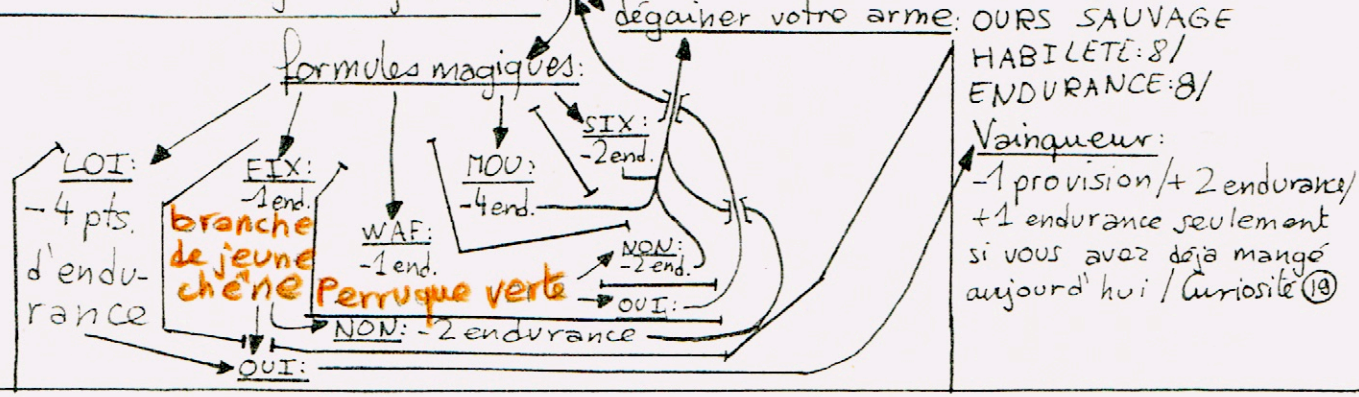 dégainer votre arme:
OURS SAUVAGE
HABILETE:8/
ENDURANCE:8/
formules magiques:
LOI:
-4 pts.
d'endu-
rance
EIX:
-1end.
branche
de jeune
chêne
WAF:
-1end.
Perruque verte
MOU:
-4end.
SIX:
-2end.
NON:
-2end.
OUI:
NON: -2 endurance
OUI:
Vainqueur:
-1 provision/+ 2 endurance/
+1 endurance seulement
si vous avez déjà mangé
aujourd'hui / Curiosité 19